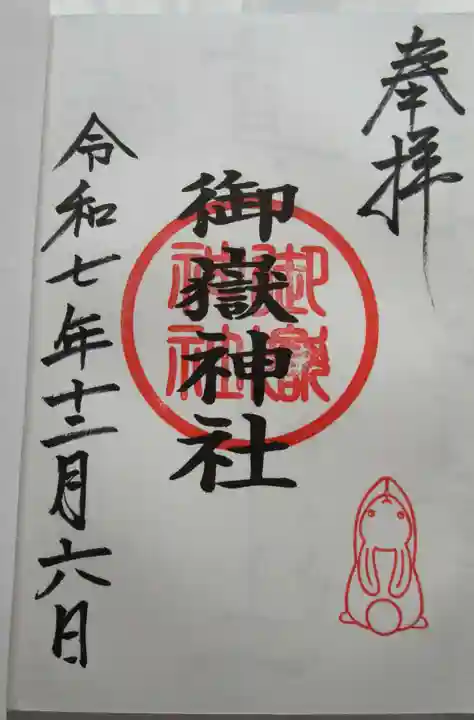 奉拝
御嶽神社
御嶽
神社
令和七年十二月六日